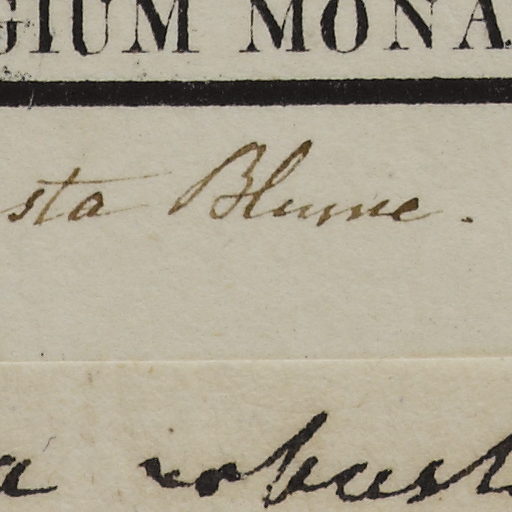 GIUM MONA
sta Blume.
a robust